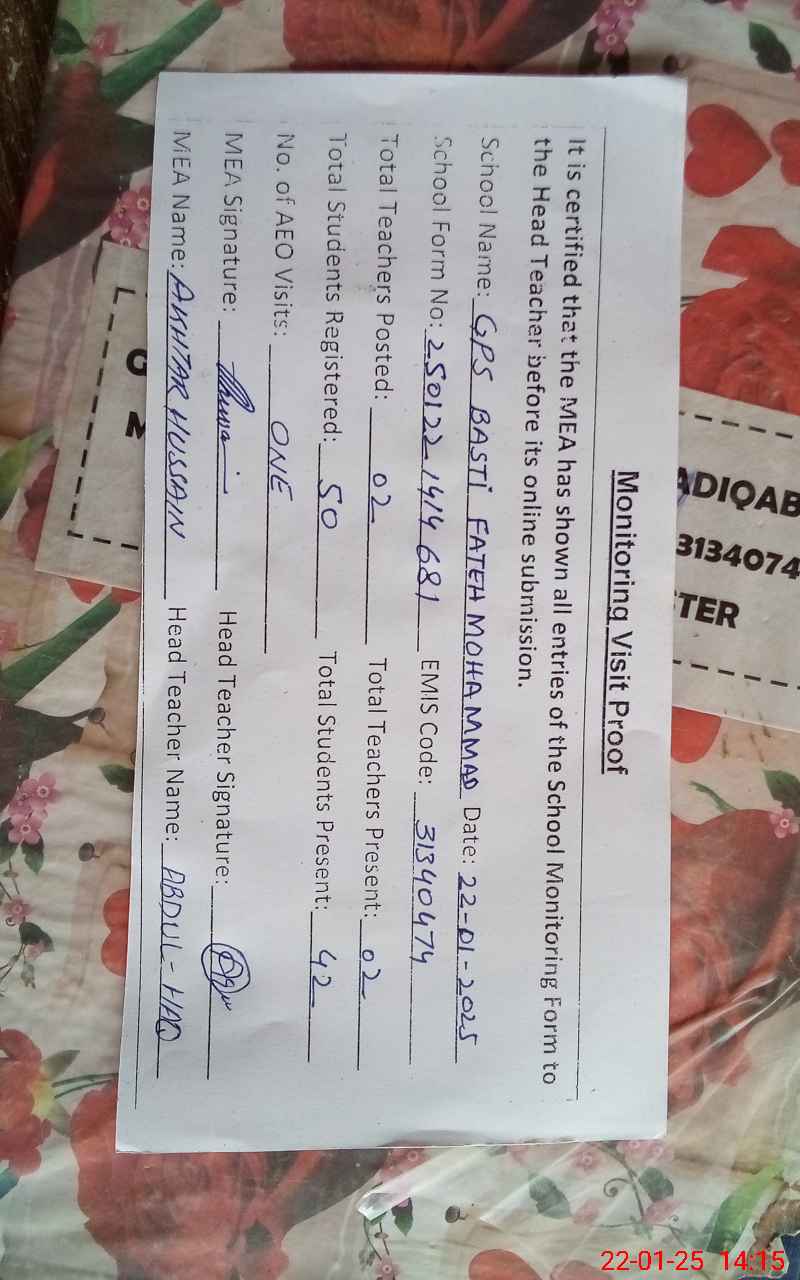 Monitoring Visit Proof
It is certified that the MEA has shown all entries of the School Monitoring Form to
the Head Teacher before its online submission.
School Name: GPS BASTI FATEH MOHAMMAD Date: 22-01-2025
School Form No: 250122 1414 681 EMIS Code: 31340474
Total Teachers Posted: 02 Total Teachers Present: 02
Total Students Registered: 50 Total Students Present: 42
No. of AEO Visits: ONE
MEA Signature: Head Teacher Signature:
MEA Name: AKHTAR HUSSAIN Head Teacher Name: ABDUL-HAQ
ADIQAB
3134074
TER
G
M
22-01-25 14:15